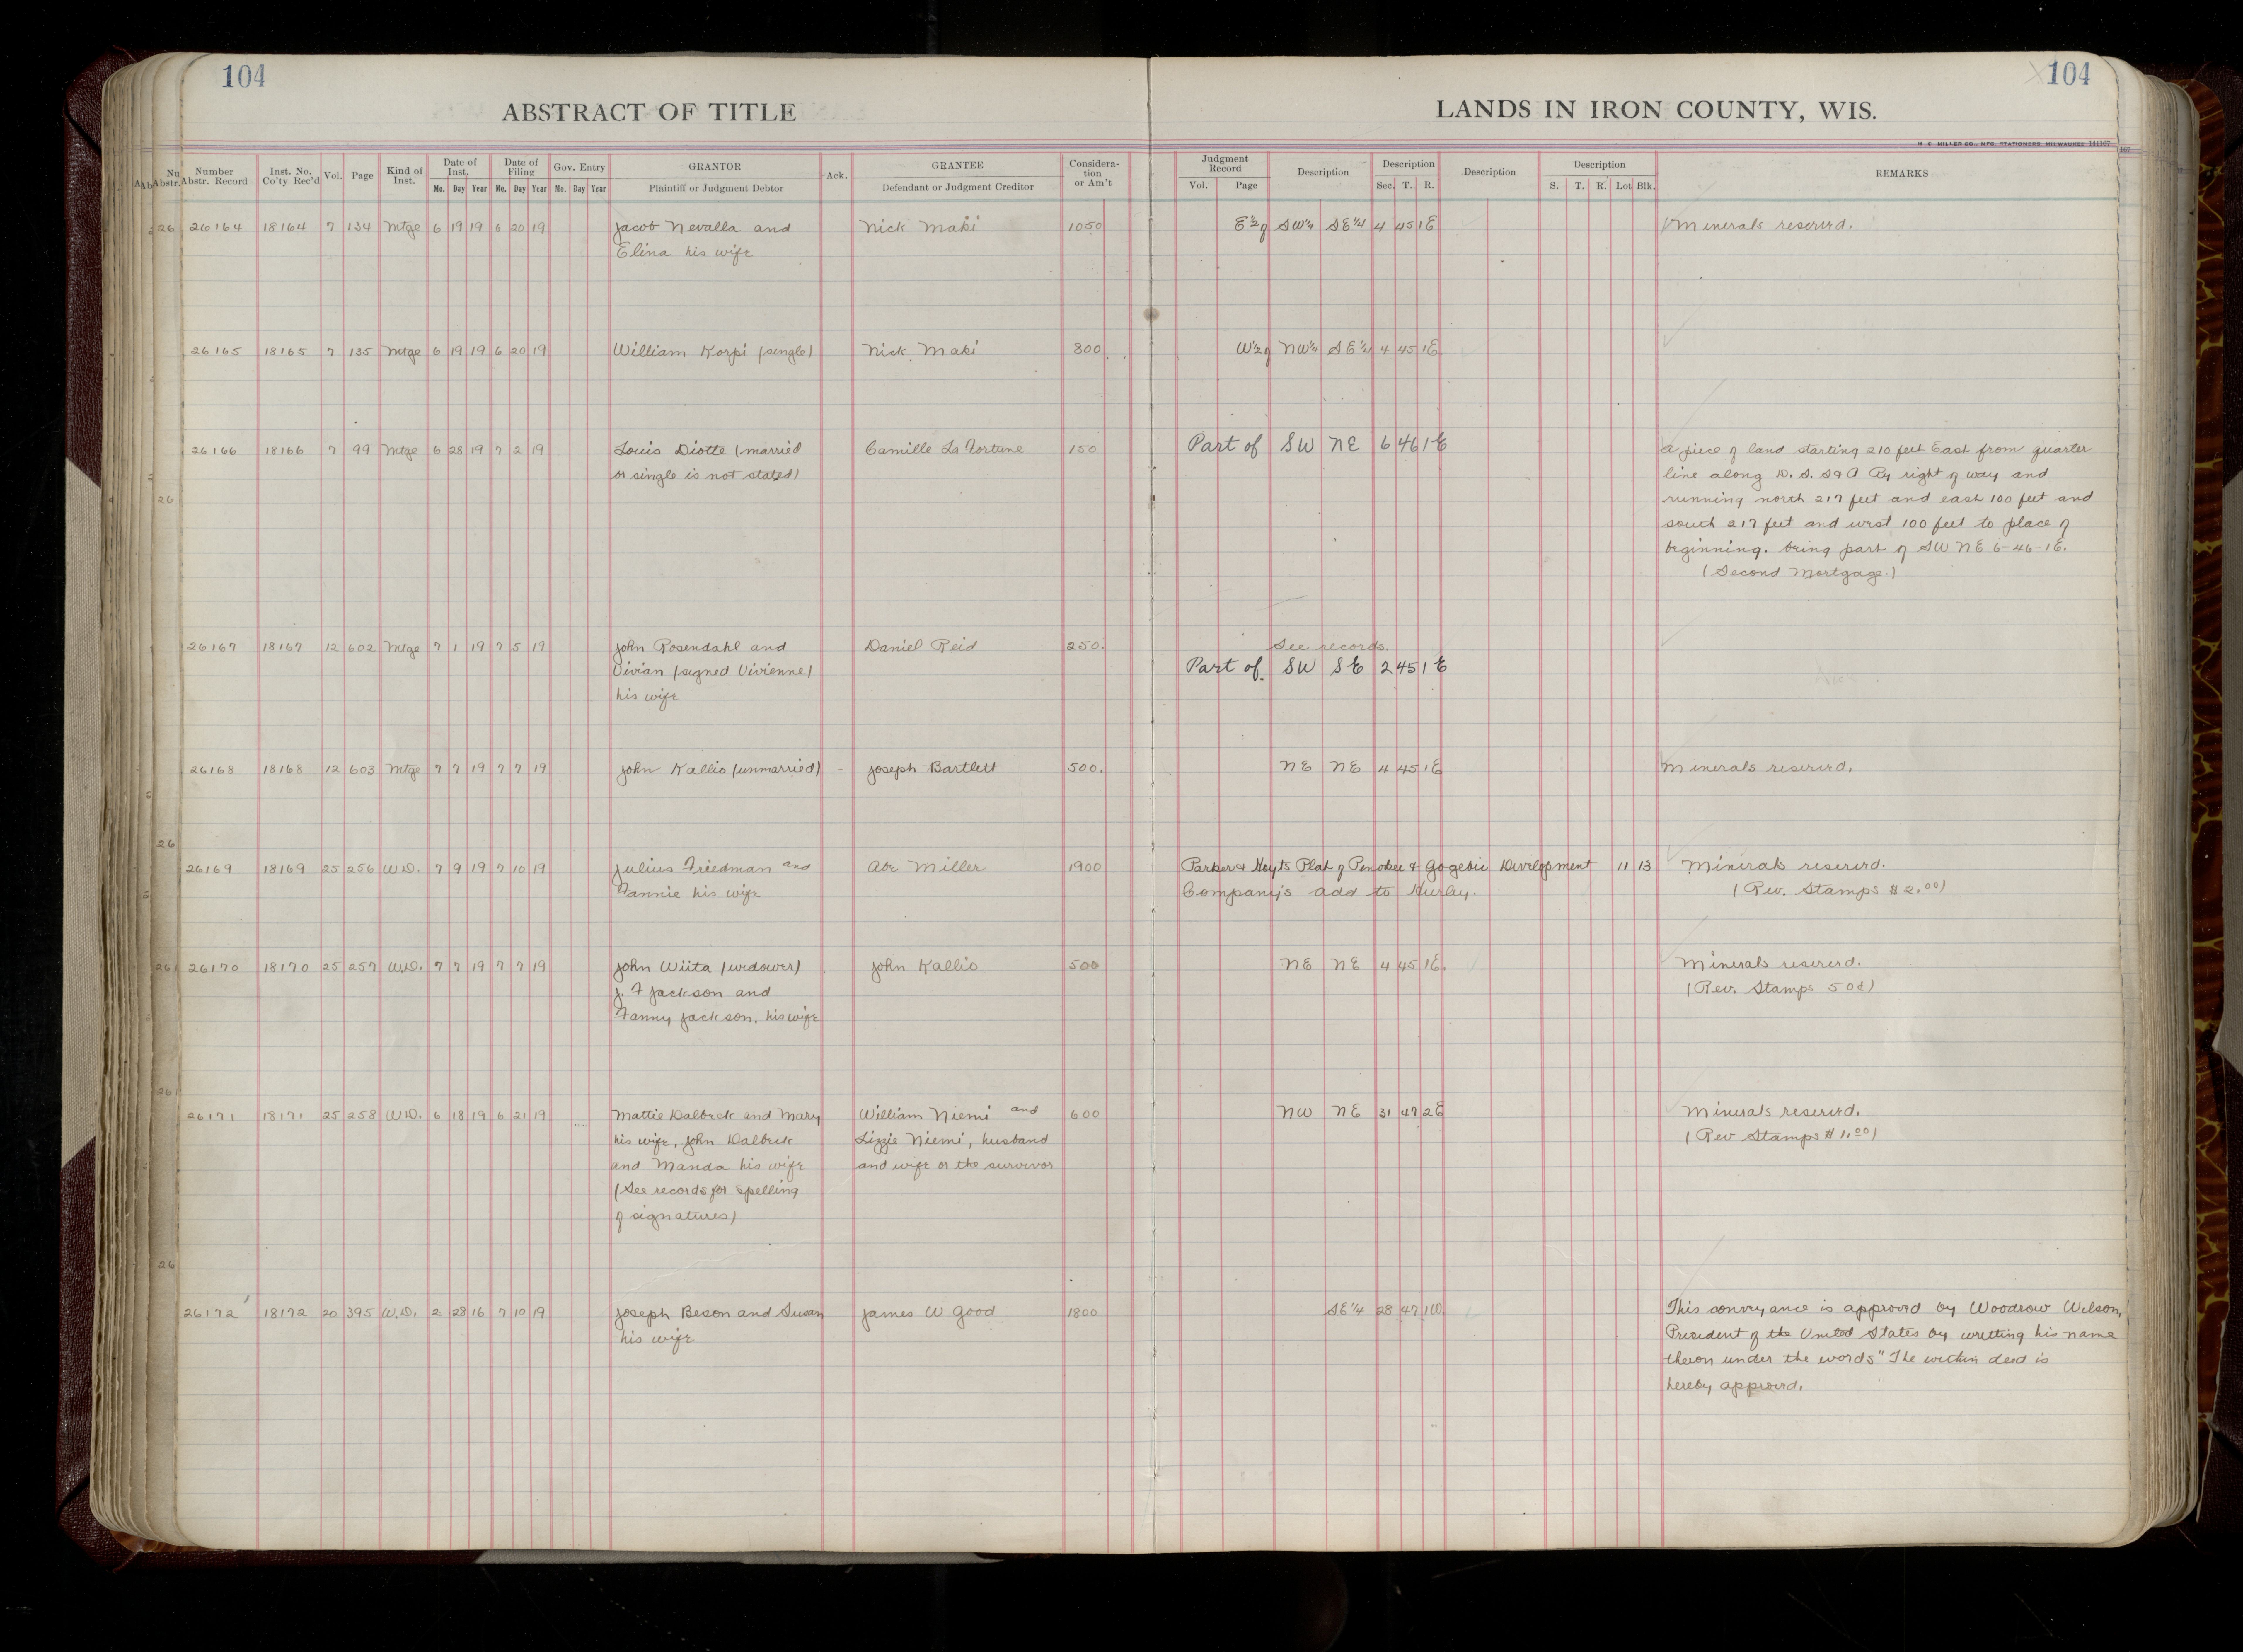 104
104
ABSTRACT OF TITLE
LANDS IN IRON COUNTY, WIS.
Number Abstr. Record | Inst. No. Co'ty Rec'd | Vol. | Page | Kind of Inst. | Date of Inst. Mo. Day Year | Date of Filing Mo. Day Year | Gov. Entry Mo. Day Year | GRANTOR Plaintiff or Judgment Debtor | Ack. | GRANTEE Defendant or Judgment Creditor | Considera-tion or Am't | Judgment Record Vol. Page | Description | Description Sec. T. R. | Description | Description S. T. R. Lot Blk. | REMARKS
26164 18164 7 134 Mtge 6 19 19 6 20 19 Jacob Nevalla and Nick Maki 1050 E½ of SW¼ SE¼ 4 45 1E Minerals reserved.
Elina his wife
26165 18165 7 135 Mtge 6 19 19 6 20 19 William Korpi (single) Nick Maki 800 W½ of NW¼ SE¼ 4 45 1E
26166 18166 7 99 Mtge 6 28 19 7 2 19 Louis Diotte (married Camille La Fortune 150 Part of SW NE 6 46 1E A piece of land starting 210 feet East from quarter
or single is not stated) line along D. S. S & A Ry right of way and
running north 217 feet and east 100 feet and
south 217 feet and west 100 feet to place of
beginning. being part of SW NE 6-46-1E.
(Second Mortgage.)
26167 18167 12 602 Mtge 7 1 19 7 5 19 John Rosendahl and Daniel Reid 250. See records.
Vivian (signed Vivienne) Part of SW SE 2 45 1E
his wife
26168 18168 12 603 Mtge 7 7 19 7 7 19 John Kallio (unmarried) Joseph Bartlett 500. NE NE 4 45 1E Minerals reserved.
26169 18169 25 256 W.D. 7 9 19 7 10 19 Julius Friedman and Abe Miller 1900 Parker & Hoyts Plat of Penokee & Gogebic Development 11 13 Minerals reserved.
Fannie his wife Company's Add to Hurley. (Rev. Stamps $2.00)
26170 18170 25 257 W.D. 7 7 19 7 7 19 John Wiita (widower) John Kallio 500 NE NE 4 45 1E. Minerals reserved.
J. F Jackson and (Rev. Stamps 50¢)
Fanny Jackson, his wife
26171 18171 25 258 W.D. 6 18 19 6 21 19 Mattie Dalbeck and Mary William Niemi and 600 NW NE 31 47 2E Minerals reserved.
his wife, John Dalbeck Lizzie Niemi, husband (Rev Stamps $1.00)
and Manda his wife and wife or the survivor
(See records for spelling
of signatures)
26172 18172 20 395 W.D. 2 28 16 7 10 19 Joseph Beson and Susan James W Good 1800 SE¼ 28 47 1W. This conveyance is approved by Woodrow Wilson,
his wife President of the United States by writting his name
theron under the words "The within deed is
hereby approved.